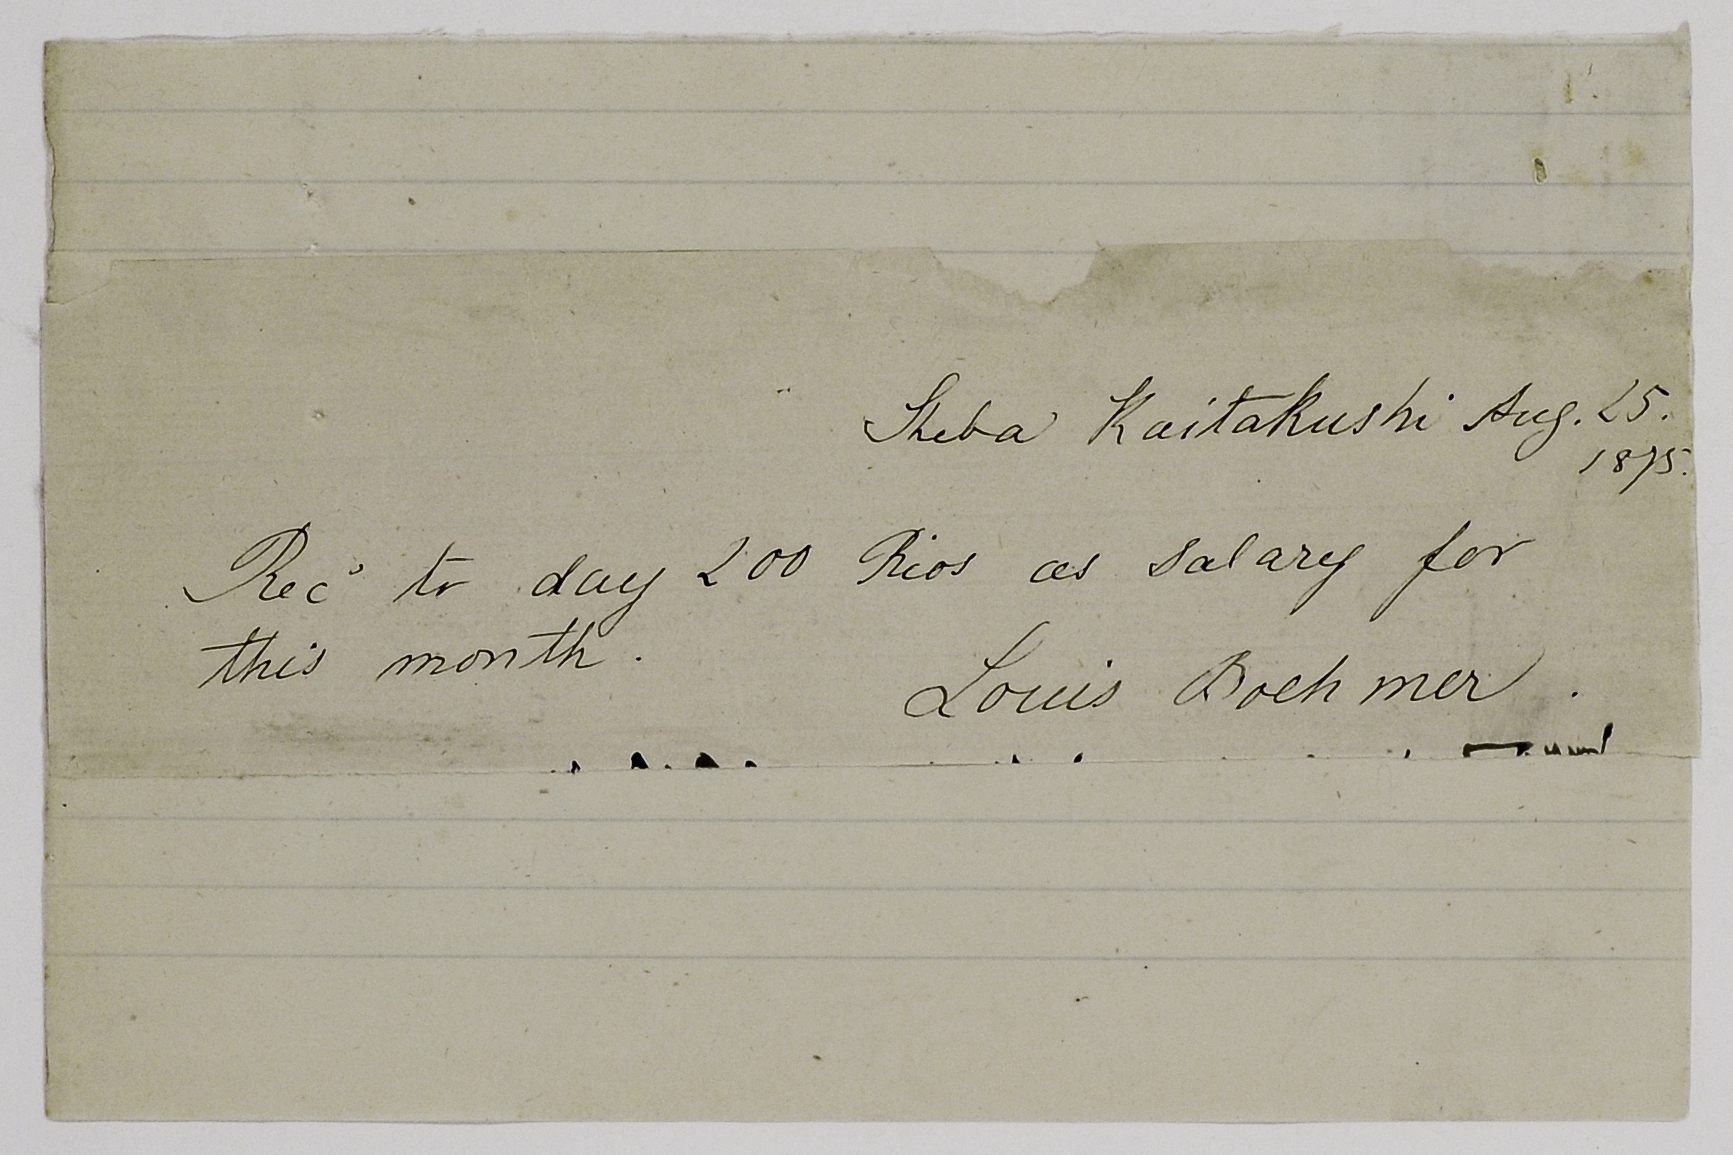 Sheba Kaitakushi Aug. 25.
1875.
Recd to day 200 Rios as salary for
this month.
Louis Boehmer.